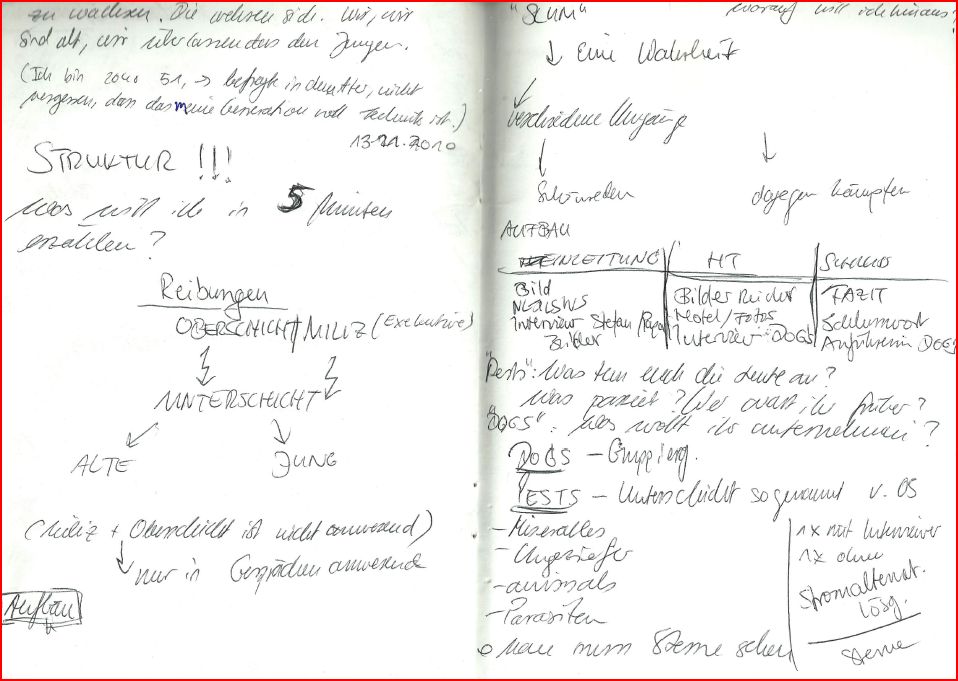 zu wachsen. Die wehren sich. Wir, wir
sind alt, wir überlassen das den Jungen.
(Ich bin 2040 51, → befragte in dem Alter, nicht
vergessen, dass das meine Generation voll Technik ist.)
2010
STRUKTUR !!!
Was will ich in 5 Minuten
erzählen?
Reibungen
OBERSCHICHT / MILIZ (Exekutive)
UNTERSCHICHT
ALTE JUNG
(Miliz + Oberschicht ist nicht anwesend)
nur in Gesprächen anwesend
Aufbau
"SLUM" worauf will ich hinaus?
↓ Eine Wahrheit
Verschiedene Umgänge
Schönreden dagegen kämpfen
AUFBAU
EINLEITUNG | HT | SCHLUSS
Bild | Bilder Reicher | FAZIT
NEWS | Motel / Fotos | Schlusswort
Interview Stefan | Interview DOGS | Anführerin DOGS
"Pests": Was tun euch die Leute an?
Was passiert? Wer wart ihr früher?
"DOGS": Was wollt ihr unternehmen?
DOGS – Gruppierg.
PESTS – Unterschicht so genannt v. OS
- Miserables
- Ungeziefer
- animals
- Parasiten
o Man muss Sterne sehen
1x mit Interviewer
1x ohne
Stromalternat.
lösg.
Sterne